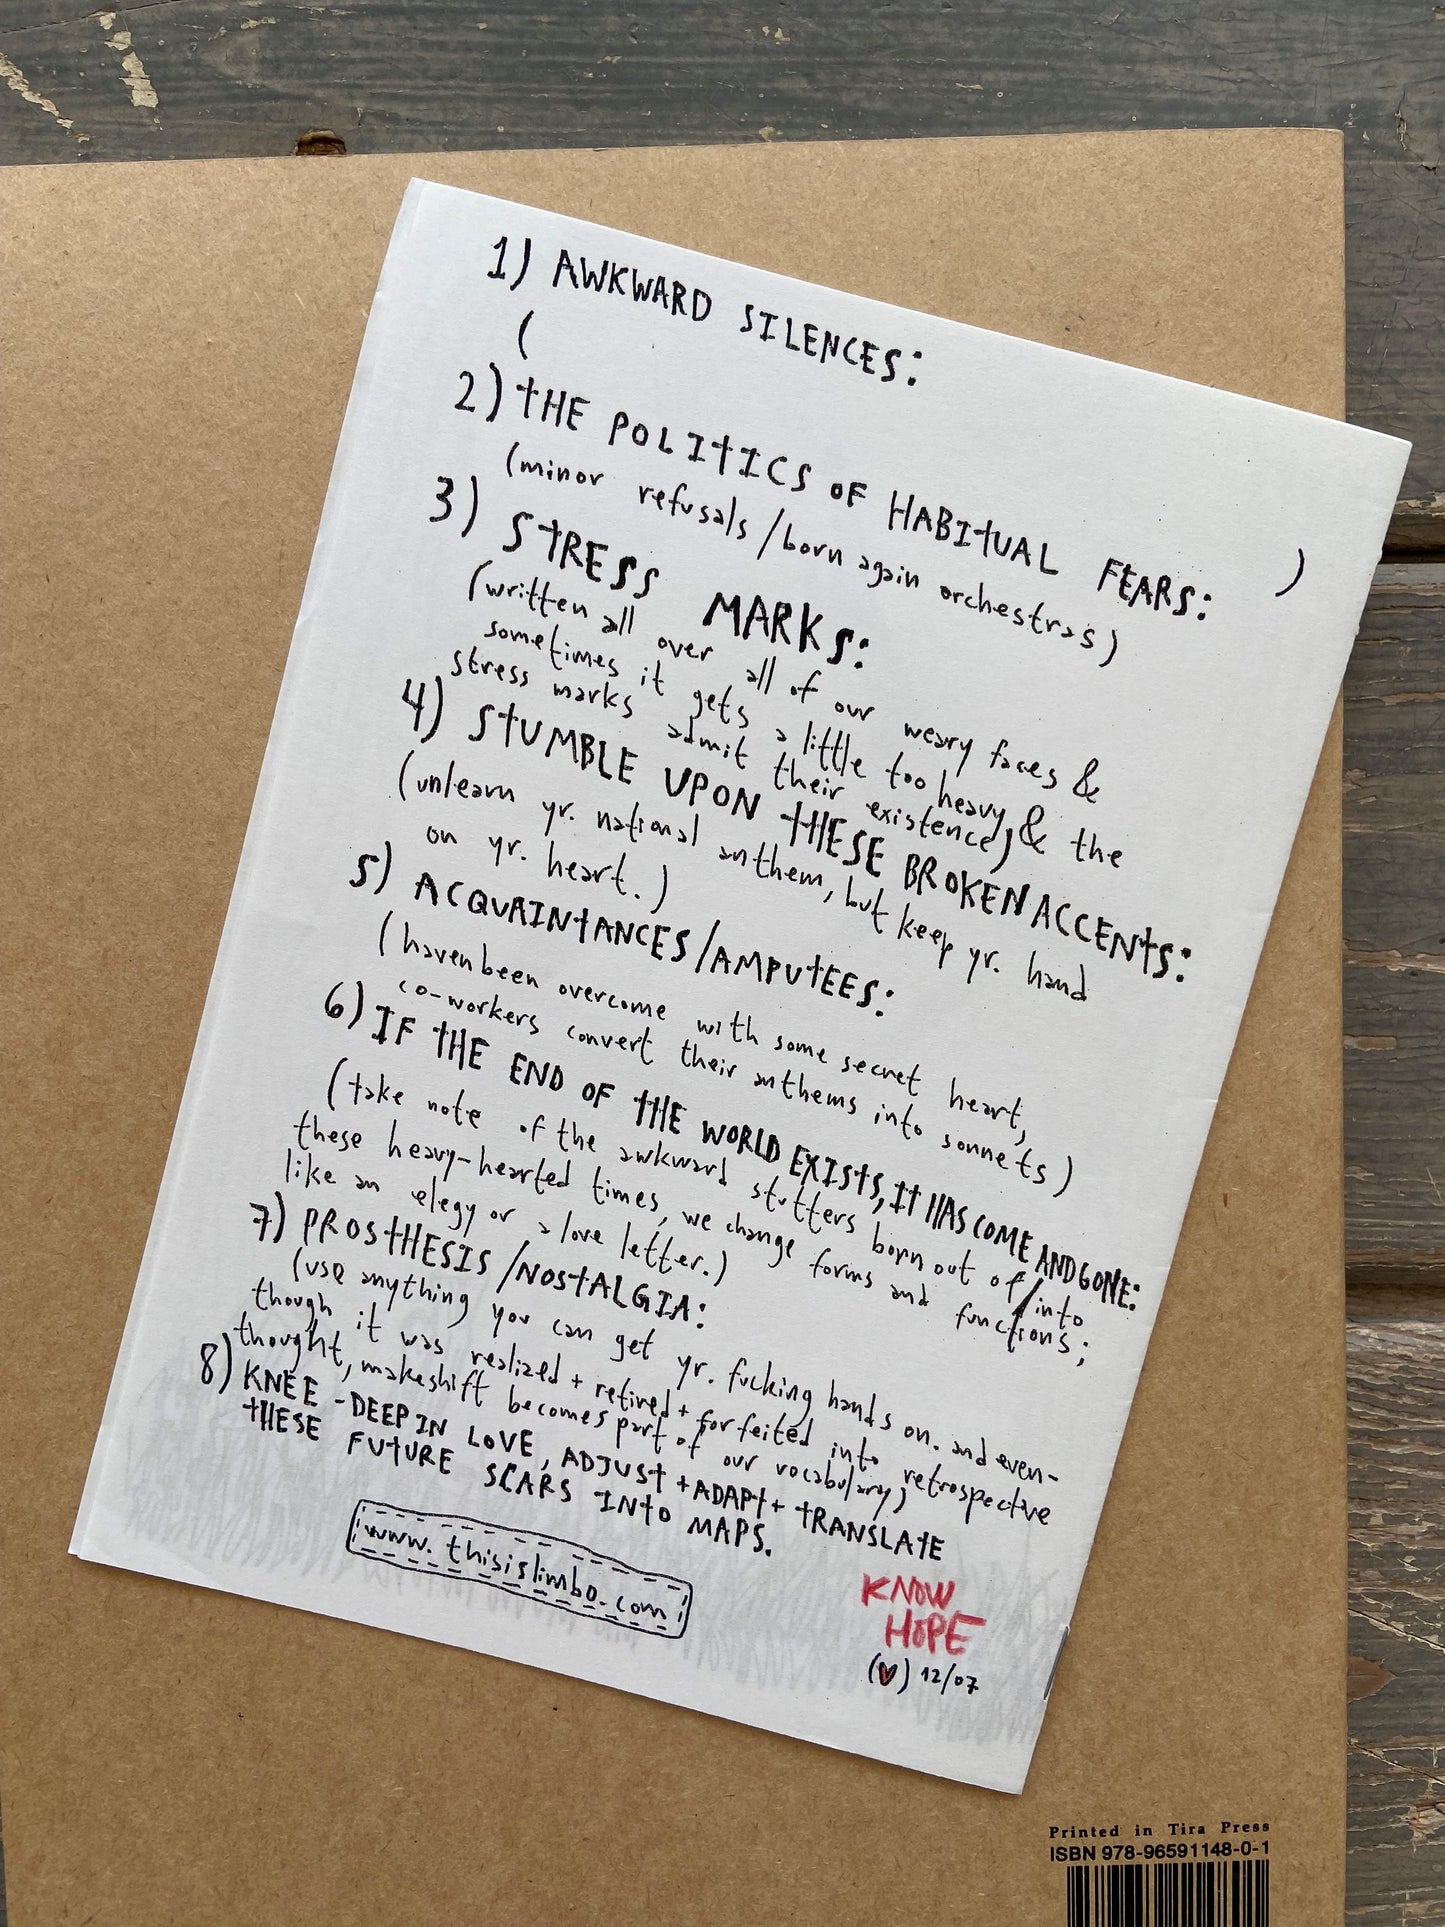 1) AWKWARD SILENCES:
( )
2) THE POLITICS OF HABITUAL FEARS:
(minor refusals/born again orchestras)
3) STRESS MARKS:
(written all over all of our weary faces &
sometimes it gets a little too heavy & the
stress marks admit their existence)
4) STUMBLE UPON THESE BROKEN ACCENTS:
(unlearn yr. national anthem, but keep yr. hand
on yr. heart.)
5) ACQUAINTANCES/AMPUTEES:
(haven been overcome with some secret heart,
co-workers convert their anthems into sonnets)
6) IF THE END OF THE WORLD EXISTS, IT HAS COME AND GONE:
(take note of the awkward stutters born out of/into
these heavy-hearted times, we change forms and functions;
like an elegy or a love letter.)
7) PROSTHESIS/NOSTALGIA:
(use anything you can get yr. fucking hands on. and even-
though it was realized + retired + forfeited into retrospective
thought, makeshift becomes part of our vocabulary)
8) KNEE-DEEP IN LOVE, ADJUST + ADAPT + TRANSLATE
THESE FUTURE SCARS INTO MAPS.
www.thisislimbo.com
KNOW
HOPE
(♥) 12/07
Printed in Tira Press
ISBN 978-96591148-0-1